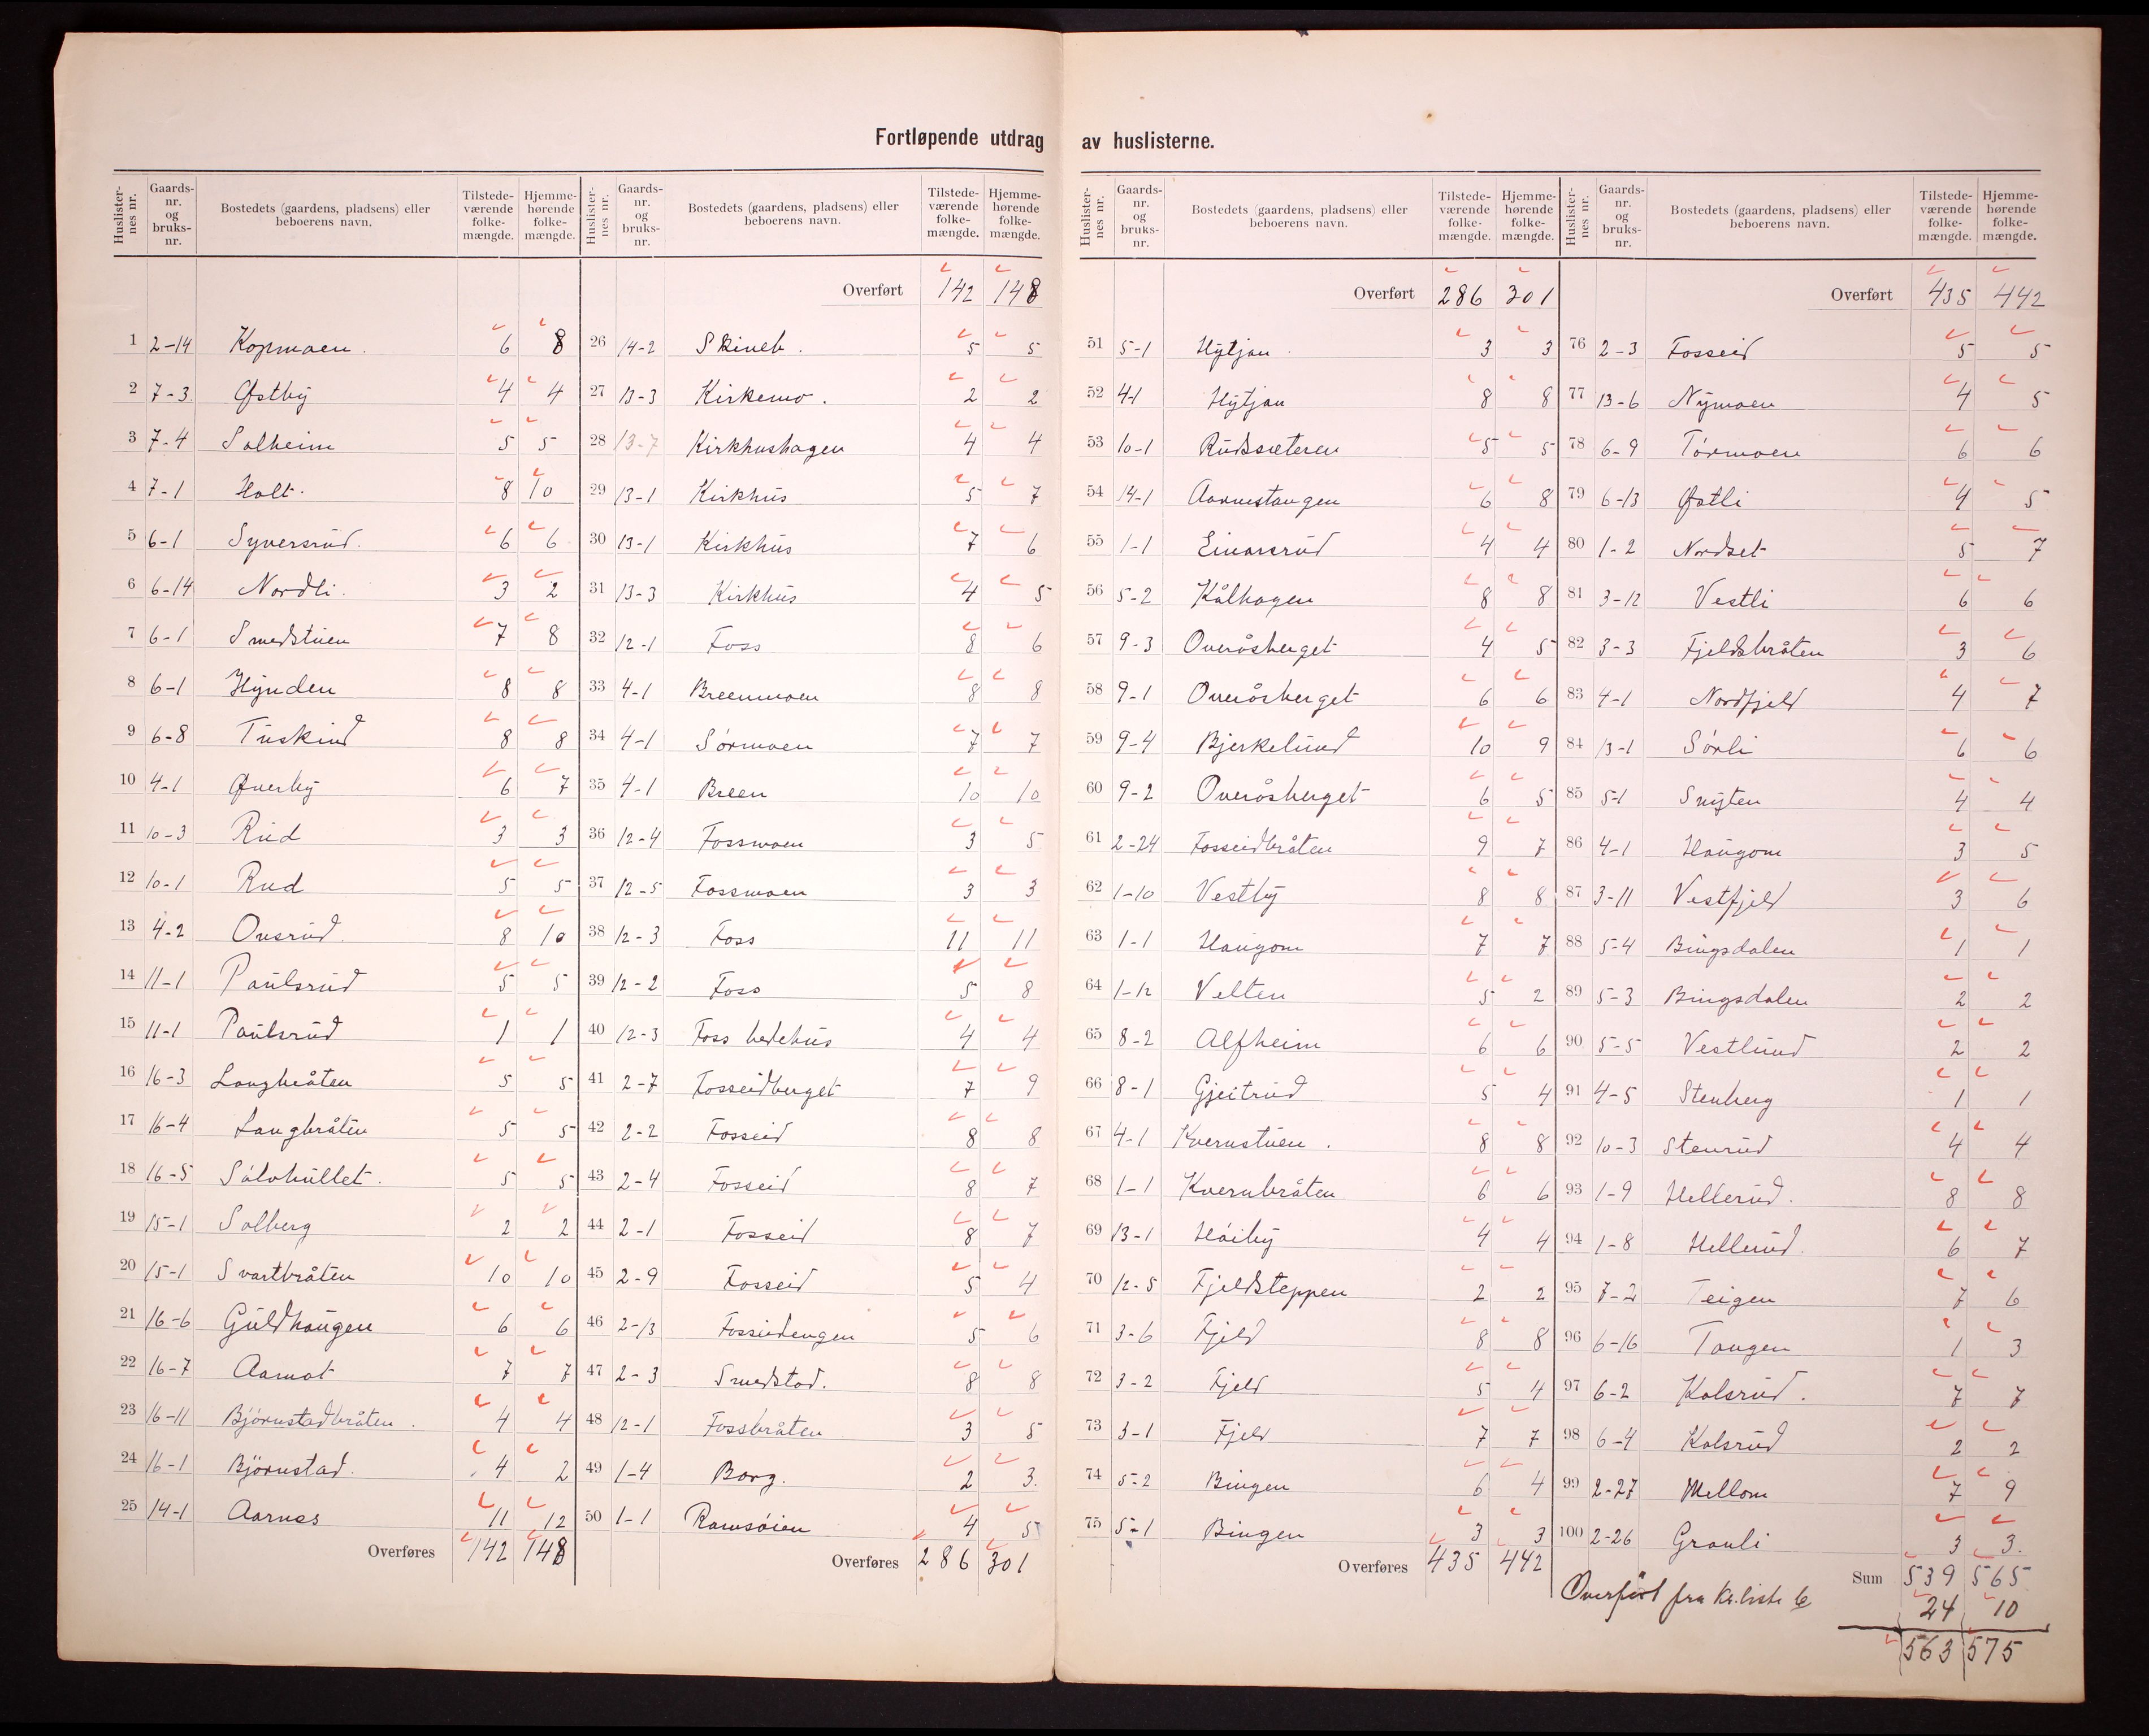 Fortløpende utdrag av huslisterne.
Huslister-nes nr. Gaards-nr. og bruks-nr. Bostedets (gaardens, pladsens) eller beboerens navn. Tilstede-værende folke-mængde. Hjemme-hørende folke-mængde.
1 2-14 Kopmoen. 6 8
2 7-3 Østby 4 4
3 7-4 Solheim 5 5
4 7-1 Holt. 8 10
5 6-1 Syversrud. 6 6
6 6-14 Nordli. 3 2
7 6-1 Smedstuen 7 8
8 6-1 Hynden 8 8
9 6-8 Tuskind 8 8
10 4-1 Øverby 6 7
11 10-3 Rud 3 3
12 10-1 Rud 5 5
13 4-2 Ousrud 8 10
14 11-1 Paulsrud 5 5
15 11-1 Paulsrud 1 1
16 16-3 Langbråten 5 5
17 16-4 Langbråten 5 5
18 16-5 Sølohullet. 5 5
19 15-1 Solberg 2 2
20 15-1 Svartbråten 10 10
21 16-6 Guldhaugen 6 6
22 16-7 Aamot 7 7
23 16-11 Bjørnstadbråten. 4 4
24 16-1 Bjørnstad. 4 2
25 14-1 Aarnes 11 12
Overføres 142 148
Huslister-nes nr. Gaards-nr. og bruks-nr. Bostedets (gaardens, pladsens) eller beboerens navn. Tilstede-værende folke-mængde. Hjemme-hørende folke-mængde.
Overført 142 148
26 14-2 5 5
27 13-3 Kirkemo. 2 2
28 13-7 Kirkhushagen 4 4
29 13-1 Kirkhus 5 7
30 13-1 Kirkhus 7 6
31 13-3 Kirkhus 4 5
32 12-1 Foss 8 6
33 4-1 Breenmoen 8 8
34 4-1 Sørmoen 7 7
35 4-1 Breen 10 10
36 12-4 Fossmoen 3 5
37 12-5 Fossmoen 3 3
38 12-3 Foss 11 11
39 12-2 Foss 5 8
40 12-3 Foss bedehus 4 4
41 2-7 Fosseidberget 7 9
42 2-2 Fosseid 8 8
43 2-4 Fosseid 8 7
44 2-1 Fosseid 8 7
45 2-9 Fosseid 5 4
46 2-13 Fosseidengen 5 6
47 2-3 Smedstad. 8 8
48 12-1 Fossbråten 3 5
49 1-4 Borg. 2 3.
50 1-1 Ramsøien 4 5
Overføres 286 301
Huslister-nes nr. Gaards-nr. og bruks-nr. Bostedets (gaardens, pladsens) eller beboerens navn. Tilstede-værende folke-mængde. Hjemme-hørende folke-mængde.
Overført 286 301
51 5-1 Hytjan. 3 3
52 4-1 Hytjan 8 8
53 10-1 Rudssæteren 5 5
54 14-1 Aarnestangen 6 8
55 1-1 Einarsrud 4 4
56 5-2 Kålhagen 8 8
57 9-3 Overåsberget 4 5
58 9-1 Overåsberget 6 6
59 9-4 Bjerkelund 10 9
60 9-2 Overåsberget 6 5
61 2-24 Fosseidbråten 9 7
62 1-10 Vestby 8 8
63 1-1 Haugom 7 7
64 1-12 Velten 5 2
65 8-2 Alfheim 6 6
66 8-1 Gjeitrud 5 4
67 4-1 Kvernstuen. 8 8
68 1-1 Kvernbråten 6 6
69 13-1 Høiby 4 4
70 12-5 Fjeldsteppen 2 2
71 3-6 Fjeld 8 8
72 3-2 Fjeld 5 4
73 3-1 Fjeld 7 7
74 5-2 Bingen 6 4
75 5-1 Bingen 3 3
Overføres 435 442
Huslister-nes nr. Gaards-nr. og bruks-nr. Bostedets (gaardens, pladsens) eller beboerens navn. Tilstede-værende folke-mængde. Hjemme-hørende folke-mængde.
Overført 435 442
76 2-3 Fosseid 5 5
77 13-6 Nymoen 4 5
78 6-9 Tørmoen 6 6
79 6-13 Østli 4 5
80 1-2 Nordset 5 7
81 3-12 Vestli 6 6
82 3-3 Fjeldsbråten 3 6
83 4-1 Nordfjeld 4 7
84 13-1 Sørli 6 6
85 5-1 Snyten 4 4
86 4-1 Haugom 3 5
87 3-11 Vestfjeld 3 6
88 5-4 Bingsdalen 1 1
89 5-3 Bingsdalen 2 2
90 5-5 Vestlund 2 2
91 4-5 Stenberg 1 1
92 10-3 Stenrud 4 4
93 1-9 Hellerud. 8 8
94 1-8 Hellerud. 6 7
95 7-2 Teigen 7 6
96 6-16 Tangen 1 3
97 6-2 Kolsrud. 7 7
98 6-4 Kolsrud 2 2
99 2-27 Mellom 7 9
100 2-26 Granli 3 3.
Sum 539 565
Overført fra Kr.liste 6 24 10
563 575